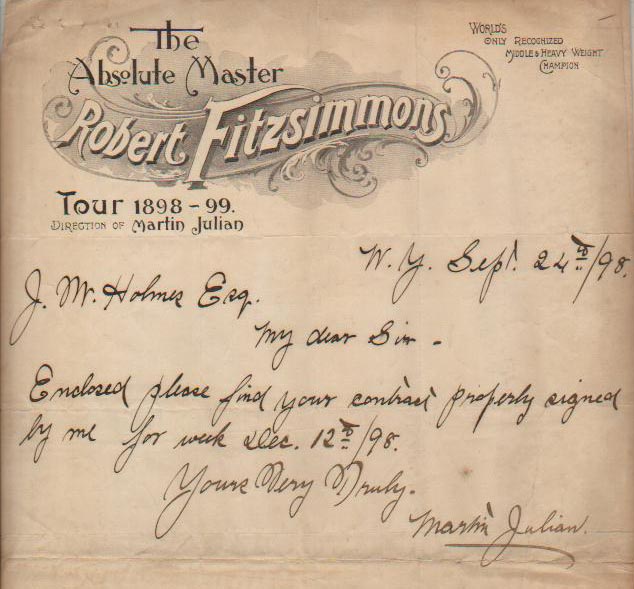 The
Absolute Master
Robert Fitzsimmons
WORLD'S
ONLY RECOGNIZED
MIDDLE & HEAVY WEIGHT
CHAMPION
Tour 1898-99.
DIRECTION OF Martin Julian
N.Y. Sept. 24th/98.
J. M. Holmes Esq.
My dear Sir -
Enclosed please find your contract properly signed
by me for week Dec. 12th/98.
Yours Very Truly.
Martin Julian.